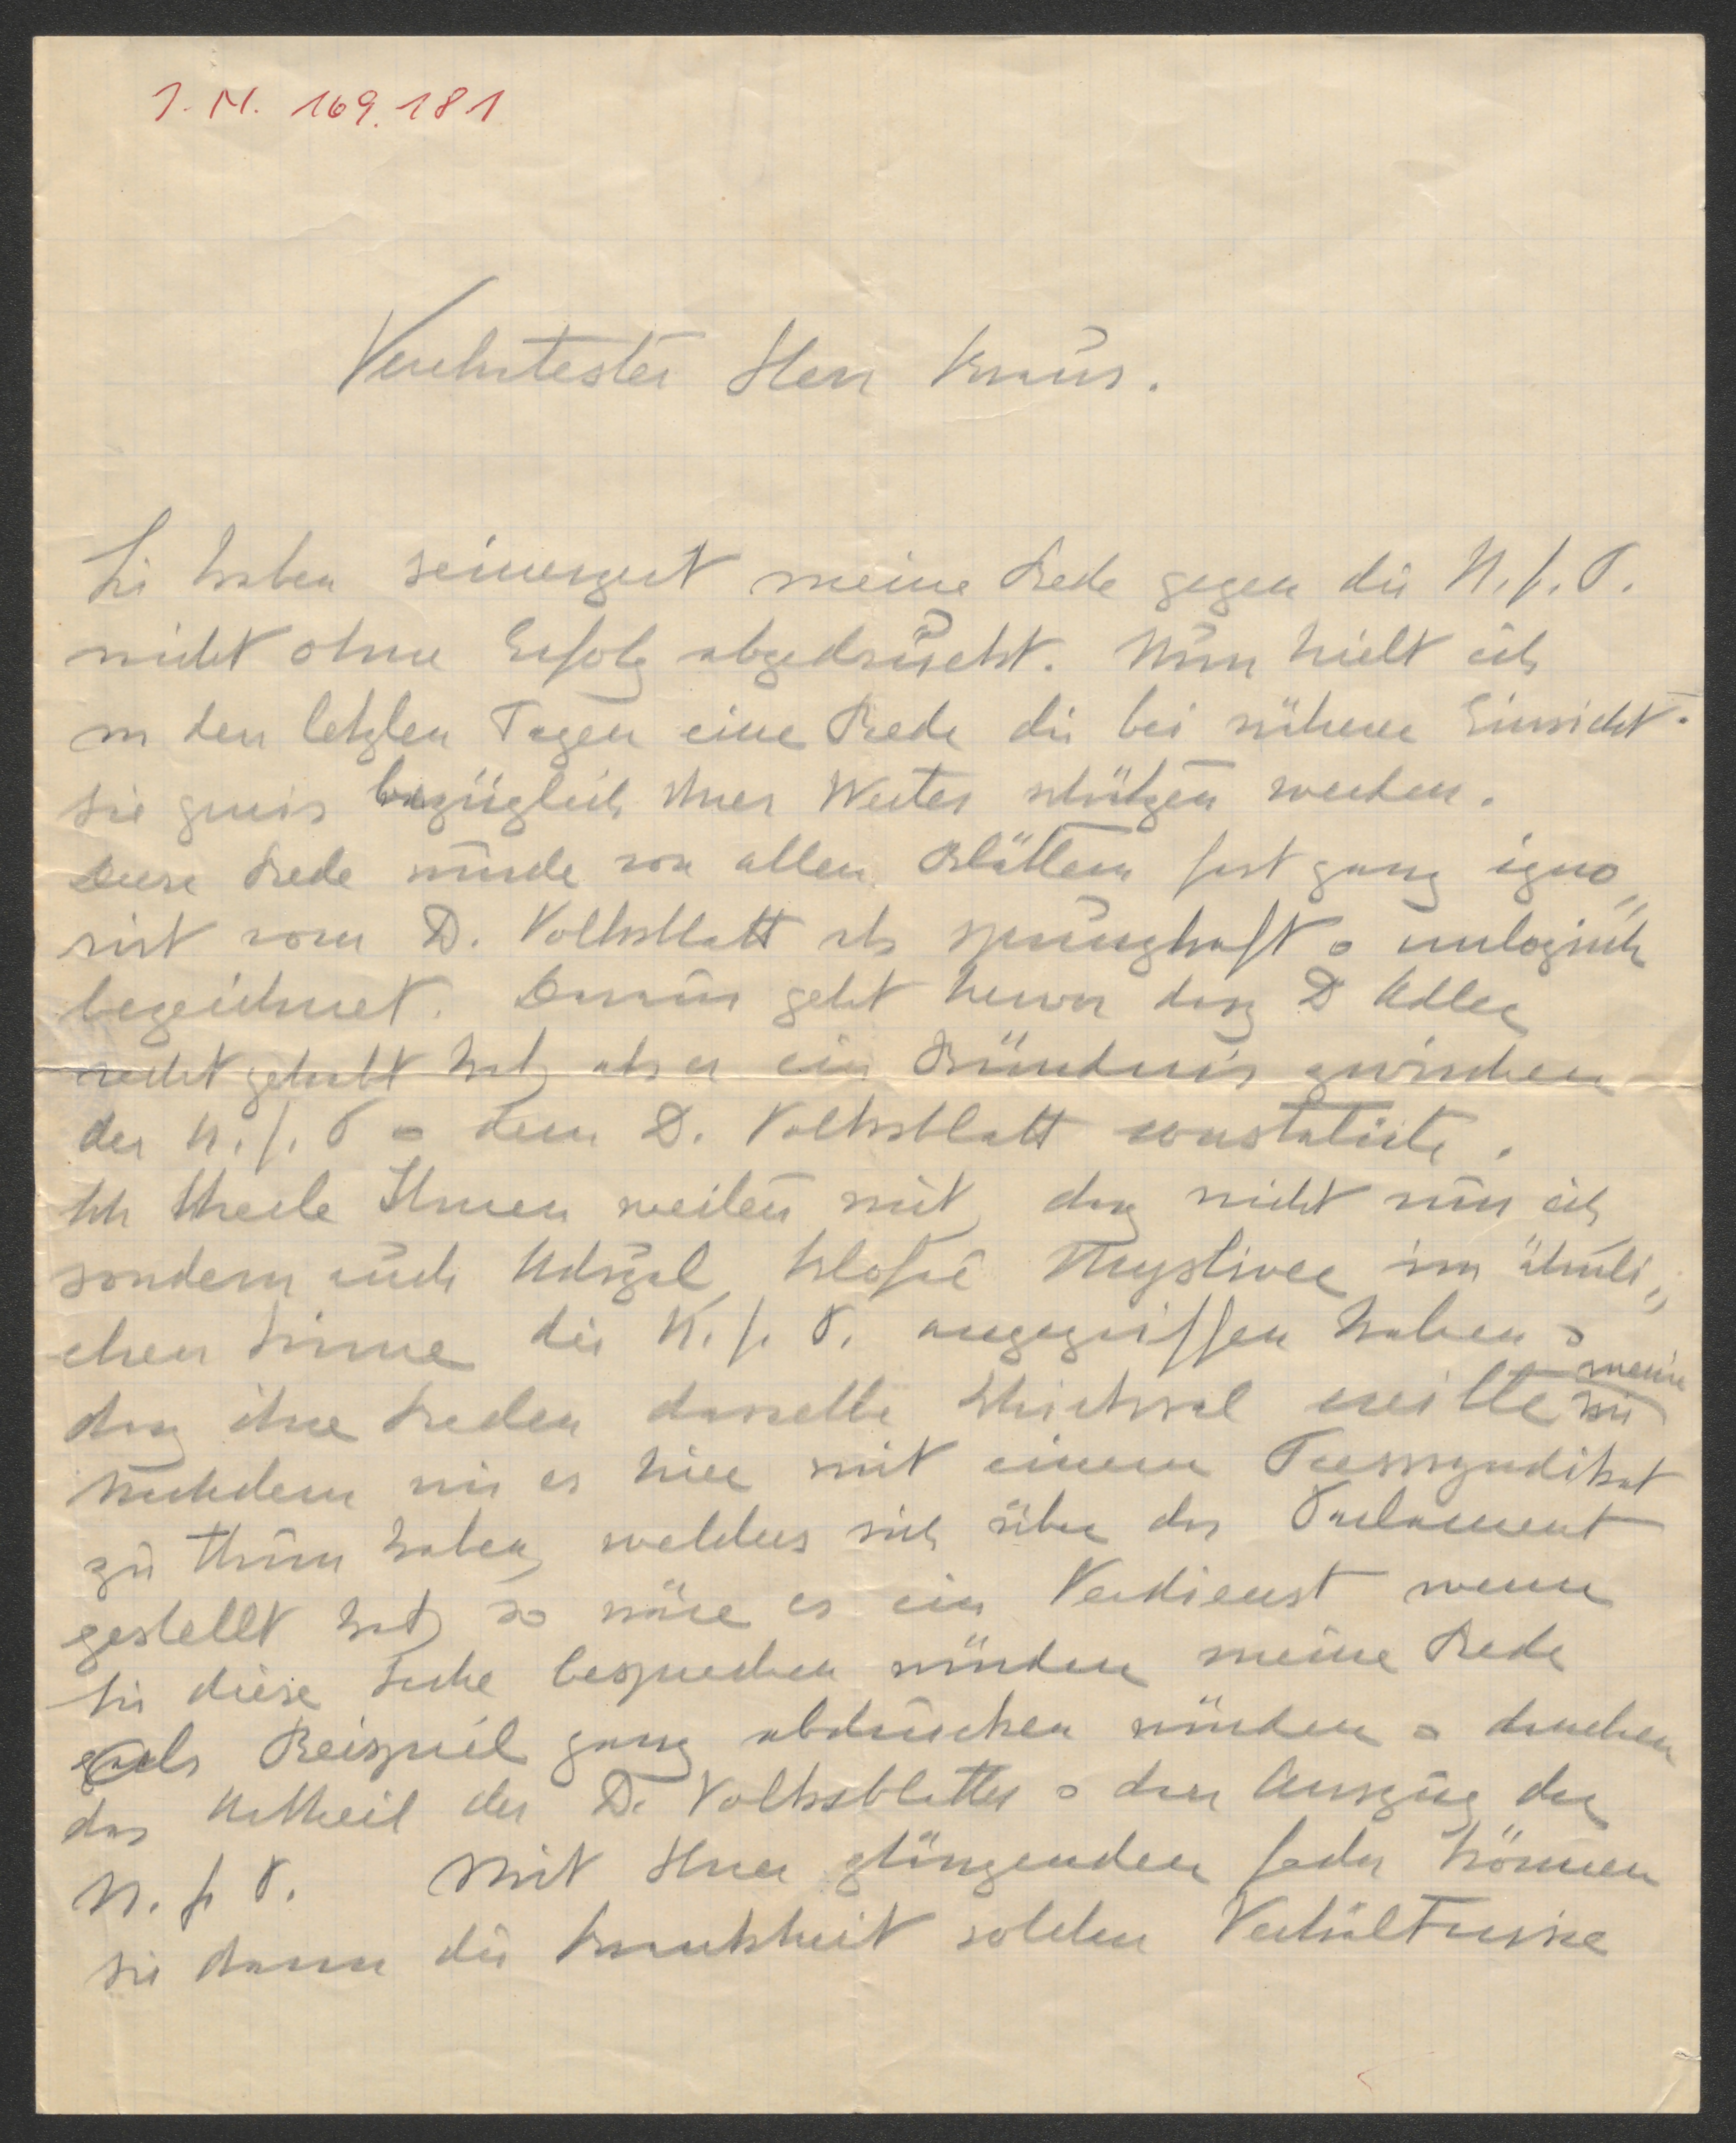 I. N. 169.181
Verehrtester Herr Kraus.
Sie haben seinerzeit meine Rede gegen die N. f. P.
nicht ohne Erfolg abgedruckt. Nun hielt ich
in den letzten Tagen eine Rede die bei näherer Einsicht
sie gewis bezüglich ihres Wertes schätzen werden.
Diese Rede wurde von allen Blättern fast ganz igno„
rirt vom D. Volksblatt als sprunghaft u unlogisch
bezeichnet. Daraus geht hervor dass D Adler
recht gehabt hat, als er ein Bündnis zwischen
der N. f. P u dem D. Volksblatt constatirte.
Ich theile Ihnen weiters mit, dass nicht nur ich
sondern auch Udrzal, Klofač Choc im ähnli„
chen Sinne die N. f. P. angegriffen haben u
dass ihre Reden dasselbe Schicksal ereilte wie meine
Nachdem wir es hier mit einem Presssyndikat
zu thun haben, welches sich über das Parlament
gestellt hat, so wäre es ein Verdienst wenn
Sie diese Sache besprechen würden meine Rede
als Beispiel ganz abdrucken würden u daneben
das Urtheil des D. Volksblattes u den Auszug der
N. f. P. Mit Ihrer glänzenden Feder können
sie dann die Krankheit solcher Verhältnisse